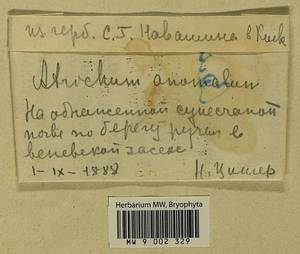 из герб. С. Г. Навашина в Киев
Atrichum anomalum
На обнаженной супесчаной
почве по берегу ручья в
веневской засеке
1-IX-1888 Н. Цингер
Herbarium MW, Bryophyta
MW 9 002 329